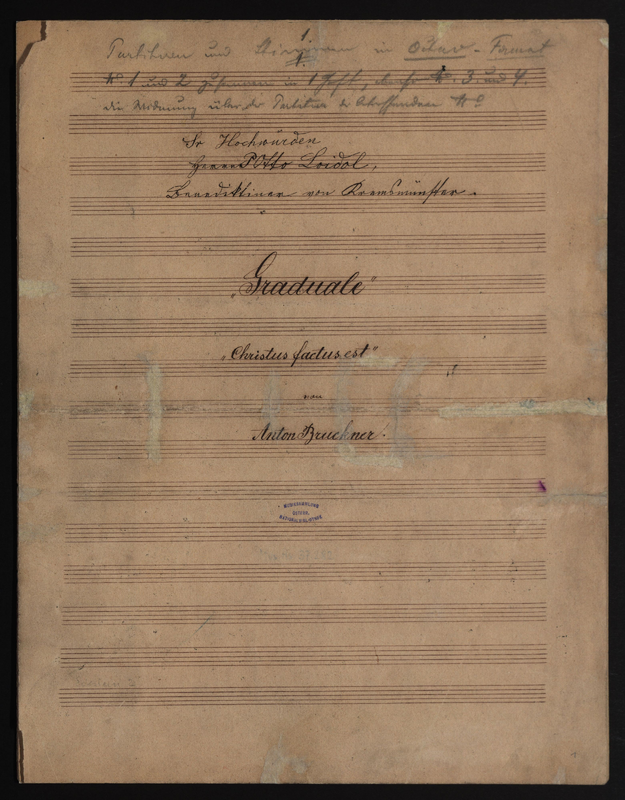 1.
Partituren und Stimmen in Octav-Format
No 1 und 2 zusammen in 1 Heft, 3 und 4.
die Widmung über der Partitur der betreffenden No
Sr Hochwürden
Herrn P. Otto Loidol,
Benediktiner von Kremsmünster.
„Graduale"
„Christus factus est"
von
Anton Bruckner.
MUSIKSAMMLUNG
ÖSTERR.
NATIONALBIBLIOTHEK